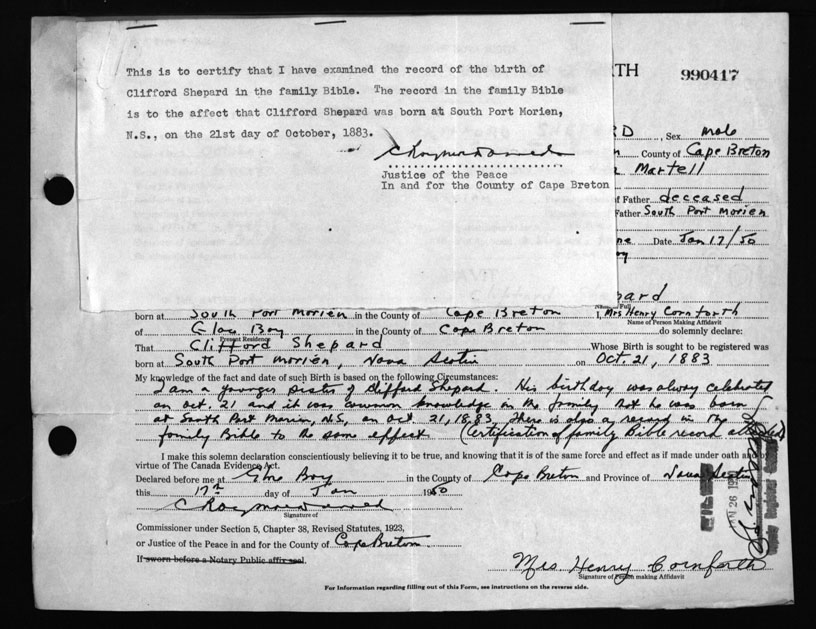 This is to certify that I have examined the record of the birth of
Clifford Shepard in the family Bible. The record in the family Bible
is to the affect that Clifford Shepard was born at South Port Morien,
N.S., on the 21st day of October, 1883.
Justice of the Peace
In and for the County of Cape Breton
RTH 990417
RD, Sex male
County of Cape Breton
Martell
of Father deceased
Father South Port Morien
Date Jan 17/50
pard
born at South Port Morien in the County of Cape Breton I, Mrs Henry Cornforth
Present Residence Name of Person Making Affidavit
of Glace Bay in the County of Cape Breton do solemnly declare:
That Clifford Shepard Whose Birth is sought to be registered was
born at South Port Morien, Nova Scotia on Oct. 21, 1883
My knowledge of the fact and date of such Birth is based on the following Circumstances:
I am a younger sister of Clifford Shepard. His birthday was always celebrated
on Oct. 21 and it was common knowledge in the family that he was born
at South Port Morien, N.S, on Oct 21, 1883. There is also a record in the
family Bible to the same effect (Certification of family Bible record attached)
I make this solemn declaration conscientiously believing it to be true, and knowing that it is of the same force and effect as if made under oath and by
virtue of The Canada Evidence Act.
Declared before me at Glace Bay in the County of Cape Breton and Province of Nova Scotia
this 17th day of Jan 1950
Signature of
Commissioner under Section 5, Chapter 38, Revised Statutes, 1923,
or Justice of the Peace in and for the County of Cape Breton
If sworn before a Notary Public affix seal.
Mrs Henry Cornforth
Signature of Person making Affidavit
For Information regarding filling out of this Form, see instructions on the reverse side.